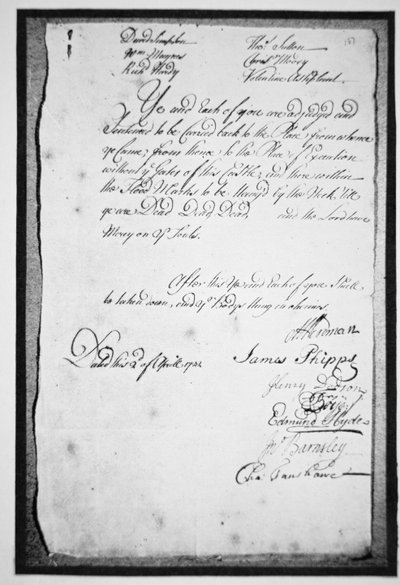 David Simpson
Wm Magnes
Richd Hardy
Thos Sutton
Christ Moody
Valentine Ashplant
Ye and Each of you are adjudged and
Sentenced to be Carried back to the Place from whence
ye Came, from thence to the Place of Execution
without ye Gates of this Castle, and there within
the Flood Marks to be Hang'd by the Neck till
ye are Dead Dead Dead and the Lord have
Mercy on yr Souls.
After this Ye, and Each of you Shall
be taken down, and yr Bodys Hung in Chains.
Dated this 2d of Aprill 1722
James Phipps
Henry Dodson
Edmund Hyde
Barnsley
Cha. Fanshawe